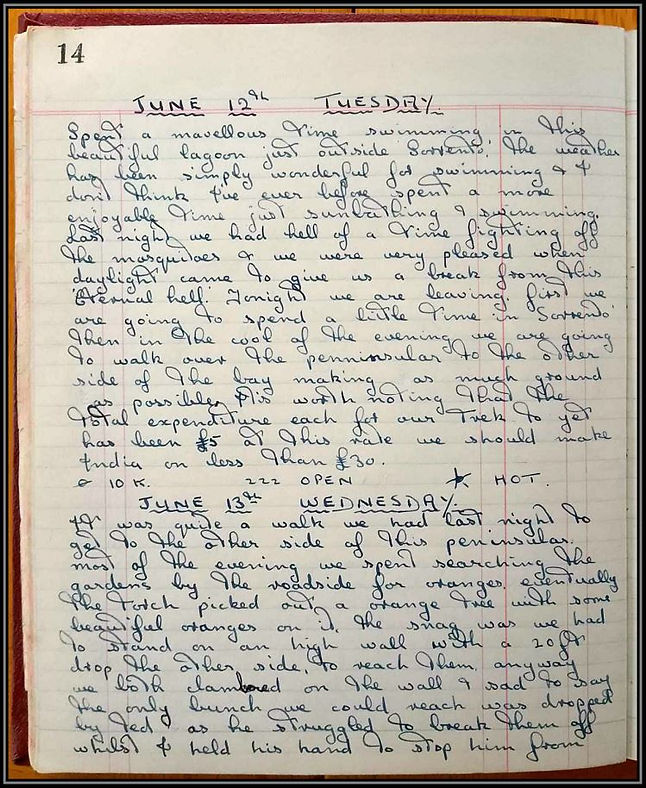 14
JUNE 12th TUESDAY.
Spent a mavellous time swimming in this
beautiful lagoon just outside Sorrento. The weather
has been simply wonderful for swimming & I
dont think I've ever before spent a more
enjoyable time just sunbathing & swimming.
Last night we had hell of a time fighting off
the mosquitoes & we were very pleased when
daylight came to give us a break from this
'Eternal hell'. Tonight we are leaving. first we
are going to spend a little time in Sorrento
then in the cool of the evening we are going
to walk over the penninsular to the other
side of the bay making as much ground
as possible. It is worth noting that the
total expenditure each for our Trek to yet
has been £5 at this rate we should make
India on less than £30.
10 K. 222 OPEN HOT.
JUNE 13th WEDNESDAY.
It was quite a walk we had last night to
get to the other side of this peninsular.
most of the evening we spent searching the
gardens by the roadside for oranges. eventually
the torch picked out a orange tree with some
beautiful oranges on it. the snag was we had
to stand on an high wall with a 20ft
drop the other side, to reach them, anyway
we both clambored on the wall & sad to say
the only bunch we could reach was dropped
by Ted as he struggled to break them off
whilst I held his hand to stop him from